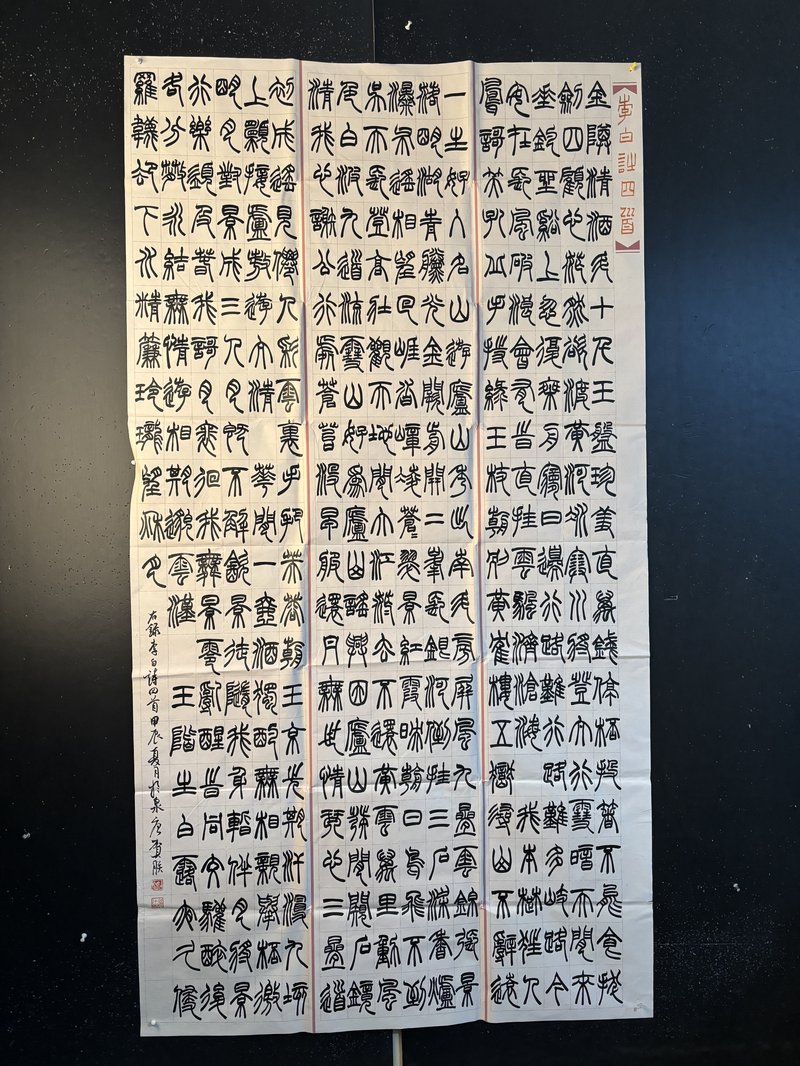 李白詩四首
金罇清酒斗十千玉盤珍羞直萬錢停杯投箸不能食拔
劍四顧心茫然欲渡黃河冰塞川將登太行雪暗天閒來
坐釣碧谿上忽復乘舟夢日邊行路難行路難多岐路今
安在長風破浪會有時直挂雲帆濟滄海 我本楚狂人
鳳歌笑孔丘手持綠玉杖朝別黃鶴樓五嶽尋山不辭遠
一生好入名山遊廬山秀出南斗傍屏風九疊雲錦張景
落明湖青黛光金闕前開二峯長銀河倒挂三石梁香爐
瀑布遙相望迴崖沓嶂凌蒼゠翠景紅霞映朝日鳥飛不到
吳天長登高壯觀天地間大江茫゠去不還黃雲萬里動風
色白波九道流雪山好為廬山謠興因廬山發閒窺石鏡
清我心謝公行處蒼苔沒早服還丹無世情琴心三疊道
初成遙見僊人彩雲裏手把芙蓉朝玉京先期汗漫九垓
上願接盧敖遊太清 花間一壺酒獨酌無相親舉杯邀
明月對景成三人月既不解飲景徒隨我身暫伴月將景
行樂須及春我歌月徘徊我舞景零亂醒時同交歡醉後
各分散永結無情遊相期邈雲漢 玉階生白露夜久侵
羅襪却下水精簾玲瓏望秋月
右錄李白詩四首甲辰夏月於泉唐